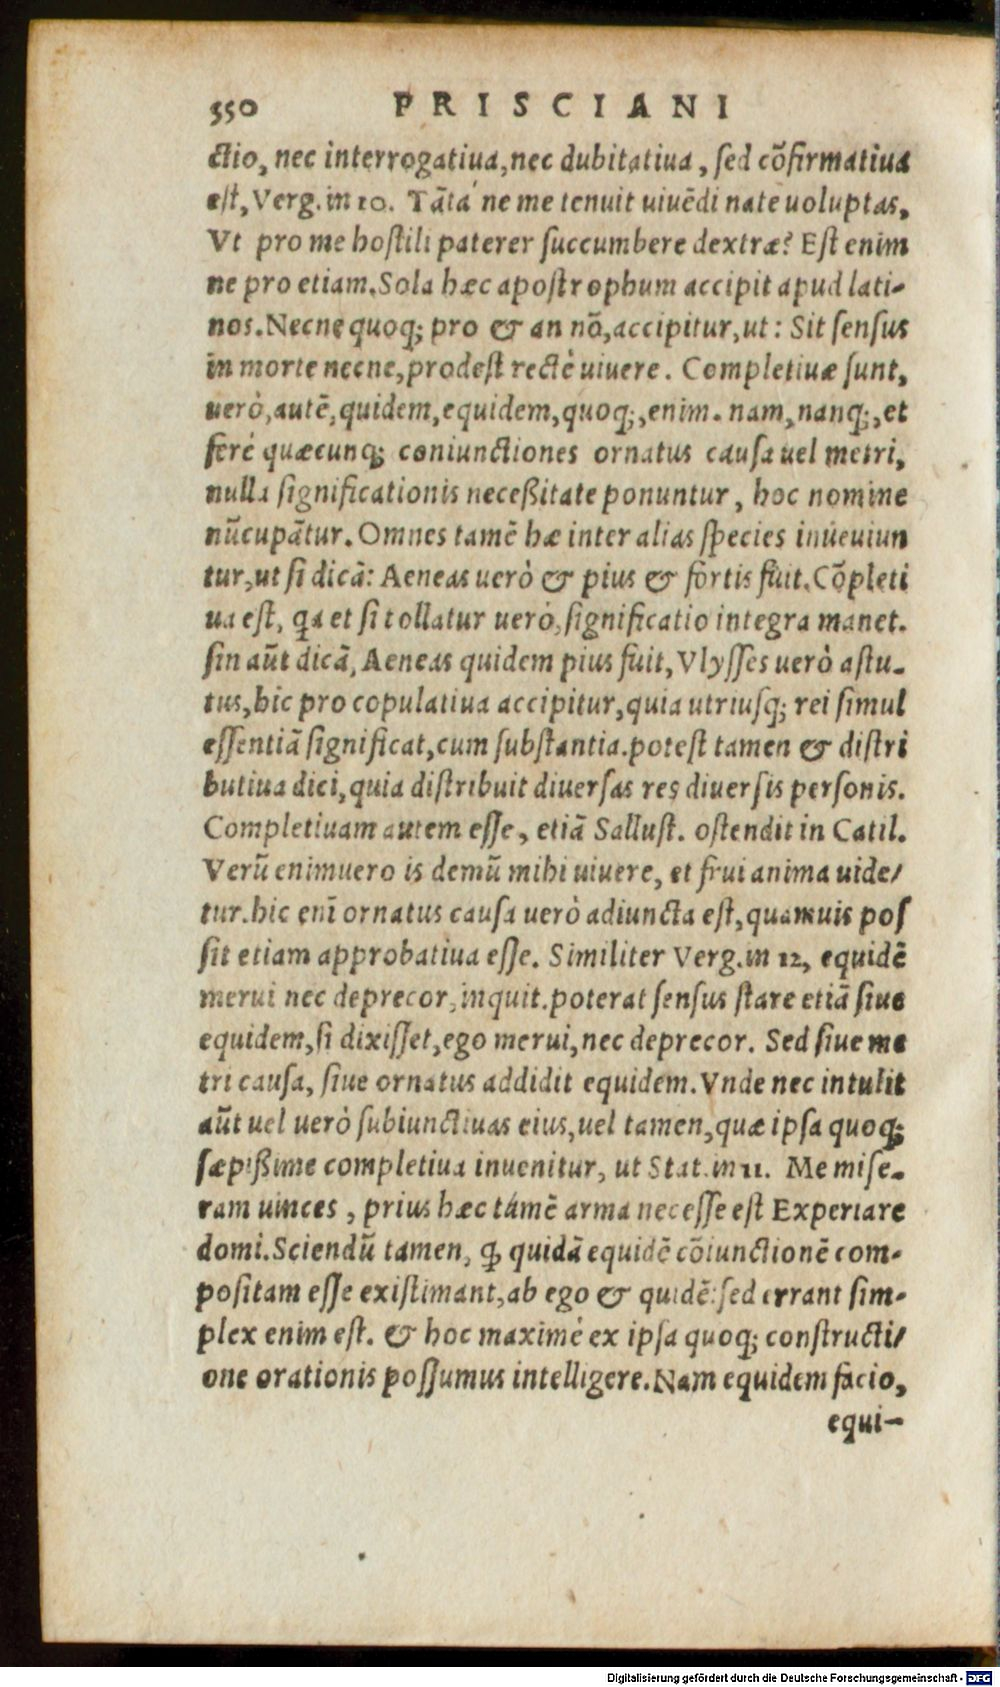 550 PRISCIANI
ctio, nec interrogatiua, nec dubitatiua, sed cõfirmatiua
est, Verg. in 10. Tãtá ne me tenuit uiuẽdi nate uoluptas,
Vt pro me hostili paterer succumbere dextræ? Est enim
ne pro etiam. Sola hæc apostrophum accipit apud lati-
nos. Necne quoq; pro & an nõ, accipitur, ut: Sit sensus
in morte necne, prodest rectè uiuere. Completiuæ sunt,
uerò, autẽ, quidem, equidem, quoq;, enim. nam, nanq;, et
ferè quæcunq; coniunctiones ornatus causa uel metri,
nulla significationis neceßitate ponuntur, hoc nomine
nũcupãtur. Omnes tamẽ hæ inter alias species inueuiun
tur, ut si dicã: Aeneas uerò & pius & fortis fuit. Cõpleti
ua est, qa et si tollatur uerò, significatio integra manet.
sin aũt dicã, Aeneas quidem pius fuit, Vlysses uerò astu-
tus, hic pro copulatiua accipitur, quia utriusq; rei simul
essentiã significat, cum substantia. potest tamen & distri
butiua dici, quia distribuit diuersas res diuersis personis.
Completiuam autem esse, etiã Sallust. ostendit in Catil.
Verũ enimuero is demũ mihi uiuere, et frui anima uide/
tur. hic enĩ ornatus causa uerò adiuncta est, quamuis pos
sit etiam approbatiua esse. Similiter Verg. in 12, equidẽ
merui nec deprecor, inquit. poterat sensus stare etiã siue
equidem, si dixisset, ego merui, nec deprecor. Sed siue me
tri causa, siue ornatus addidit equidem. Vnde nec intulit
aũt uel uerò subiunctiuas eius, uel tamen, quæ ipsa quoq;
sæpißime completiua inuenitur, ut Stat. in 11. Me mise-
ram uinces, prius hæc támẽ arma necesse est Experiare
domi. Sciendũ tamen, q; quidã equidẽ cõiunctionẽ com-
positam esse existimant, ab ego & quidẽ: sed errant sim-
plex enim est. & hoc maximè ex ipsa quoq; constructi/
one orationis possumus intelligere. Nam equidem facio,
equi-
Digitalisierung gefördert durch die Deutsche Forschungsgemeinschaft - DFG